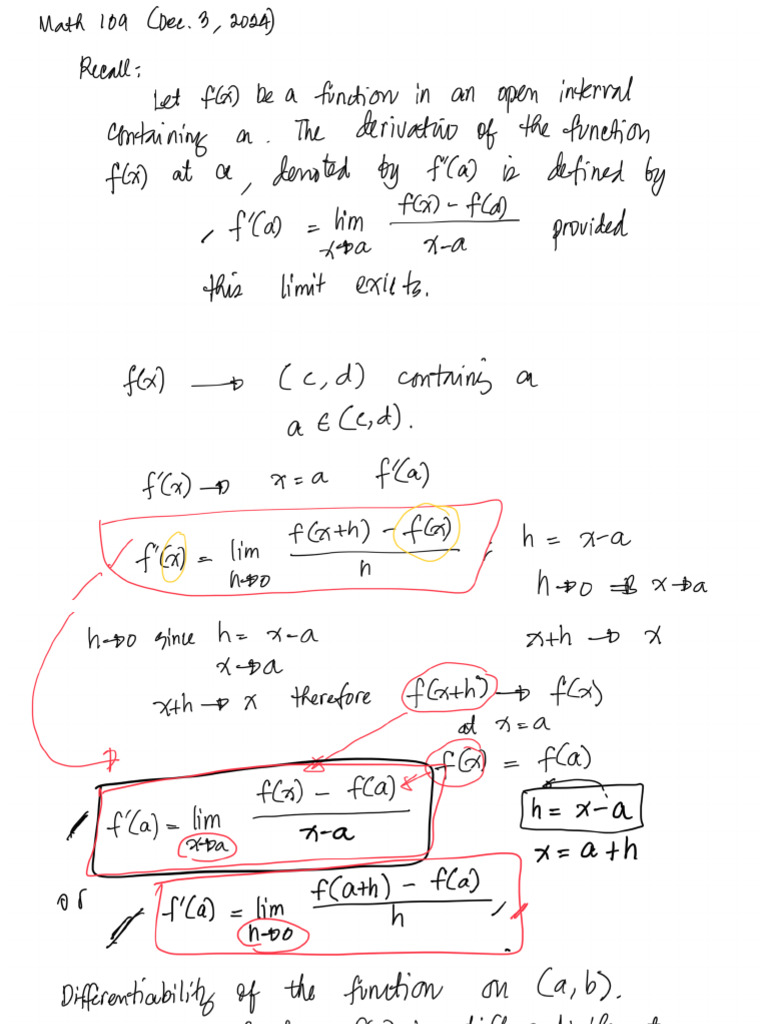 Math 109 (Dec. 3, 2024)
Recall:
Let f(x) be a function in an open interval
containing a. The derivative of the function
f(x) at a, denoted by f'(a) is defined by
, f'(a) = lim x→a (f(x) - f(a))/(x-a) provided
this limit exists.
f(x) → (c, d) containing a
a ∈ (c,d).
f'(x) → x = a f'(a)
f'(x) = lim h→0 (f(x+h) - f(x))/h , h = x-a
h→0 ⇒ x→a
h→0 since h = x-a x+h → x
x→a
x+h → x therefore f(x+h) → f(x)
at x=a
f(x) = f(a)
f'(a) = lim x→a (f(x) - f(a))/(x-a)
h = x-a
x = a+h
or f'(a) = lim h→0 (f(a+h) - f(a))/h ,
Differentiability of the function on (a,b).